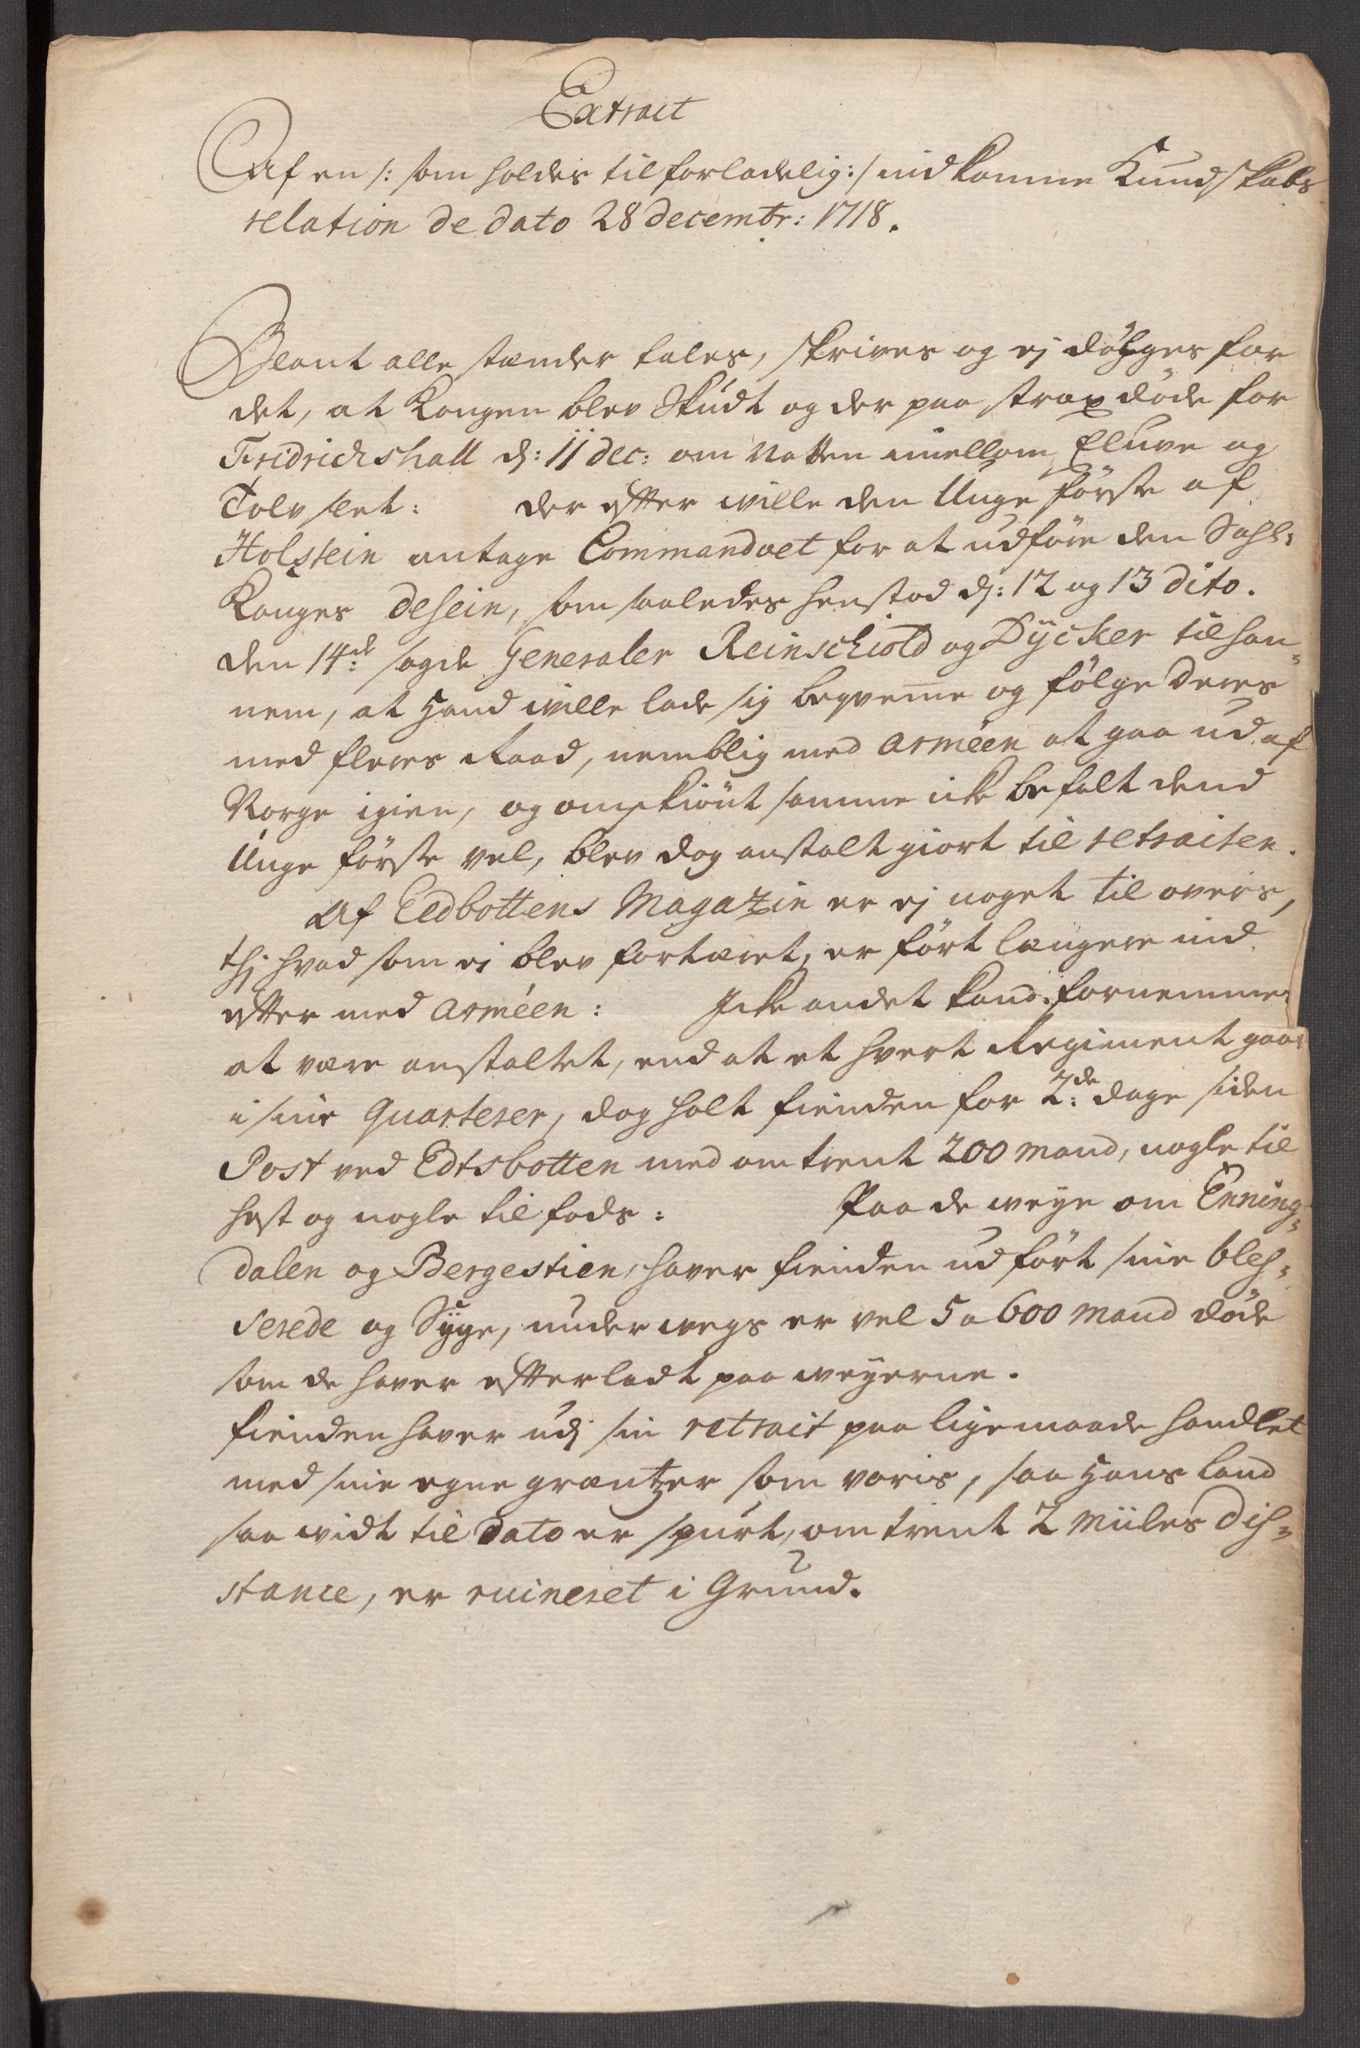 Extract
Af en /: som holdes til forladelig :/ indkomne Kundskabs
relation de dato 28 decembr: 1718.
Blant alle stænder tales, skrives og ej dølges for
det, at Kongen blev Skudt og der paa strax døde for
Fridrichshall d: 11 dec: om Natten imellom Elluve og
Tolv slet: der efter wille den Unge første af
Holstein antage Commandoet for at udføre den Sahl:
Konges desein, som saaledes henstod d: 12 og 13 dito.
den 14de sagde Generaler Reinschiold og Dycker til han-
nem, at Hand wille lade sig beqvemme og følge deres
med fleres Raad, nemblig med Arméen at gaa ud af
Norge igien, og omskiønt samme icke befalt dend
Unge første vel, blev dog anstalt giort til retraiten.
Af Eedbottens Magazin er ej noget til overs,
thj hvad som ej blev fortæret, er ført længere ind
efter med Arméen: Icke andet kand fornemmes
at være anstaltet, end at et hvert Regiment gaar
i sine Quarterer, dog holt fienden for 2de dage siden
Post ved Edtsbotten med omtrent 200 mand, nogle til
hest og nogle til fods: Paa de weye om Enning-
dalen og Bergestien, haver fienden udført sine bles-
serede og Syge, underwegs er vel 5 a 600 mand døde
som de haver efterladt paa weyerne.
fienden haver udj sin retrait paa lige maade handlet
med sine egne græntzer som voris, saa Hans land
saa widt til dato er spurt, omtrent 2 Miiles Dis-
stance, er ruineret i Grund.